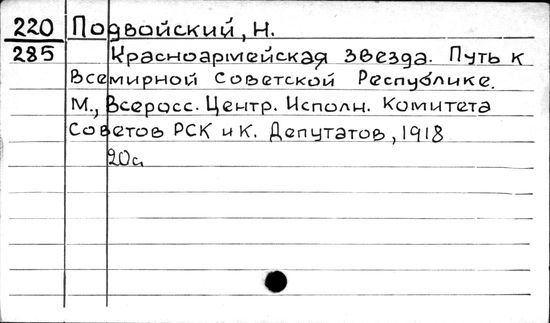 220 Подвойский, Н.
285 Красноармейская звезда. Путь к
Всемирной Советской Республике.
М., Всеросс. Центр. Исполн. Комитета
Советов РСК и К. Депутатов, 1918
20с